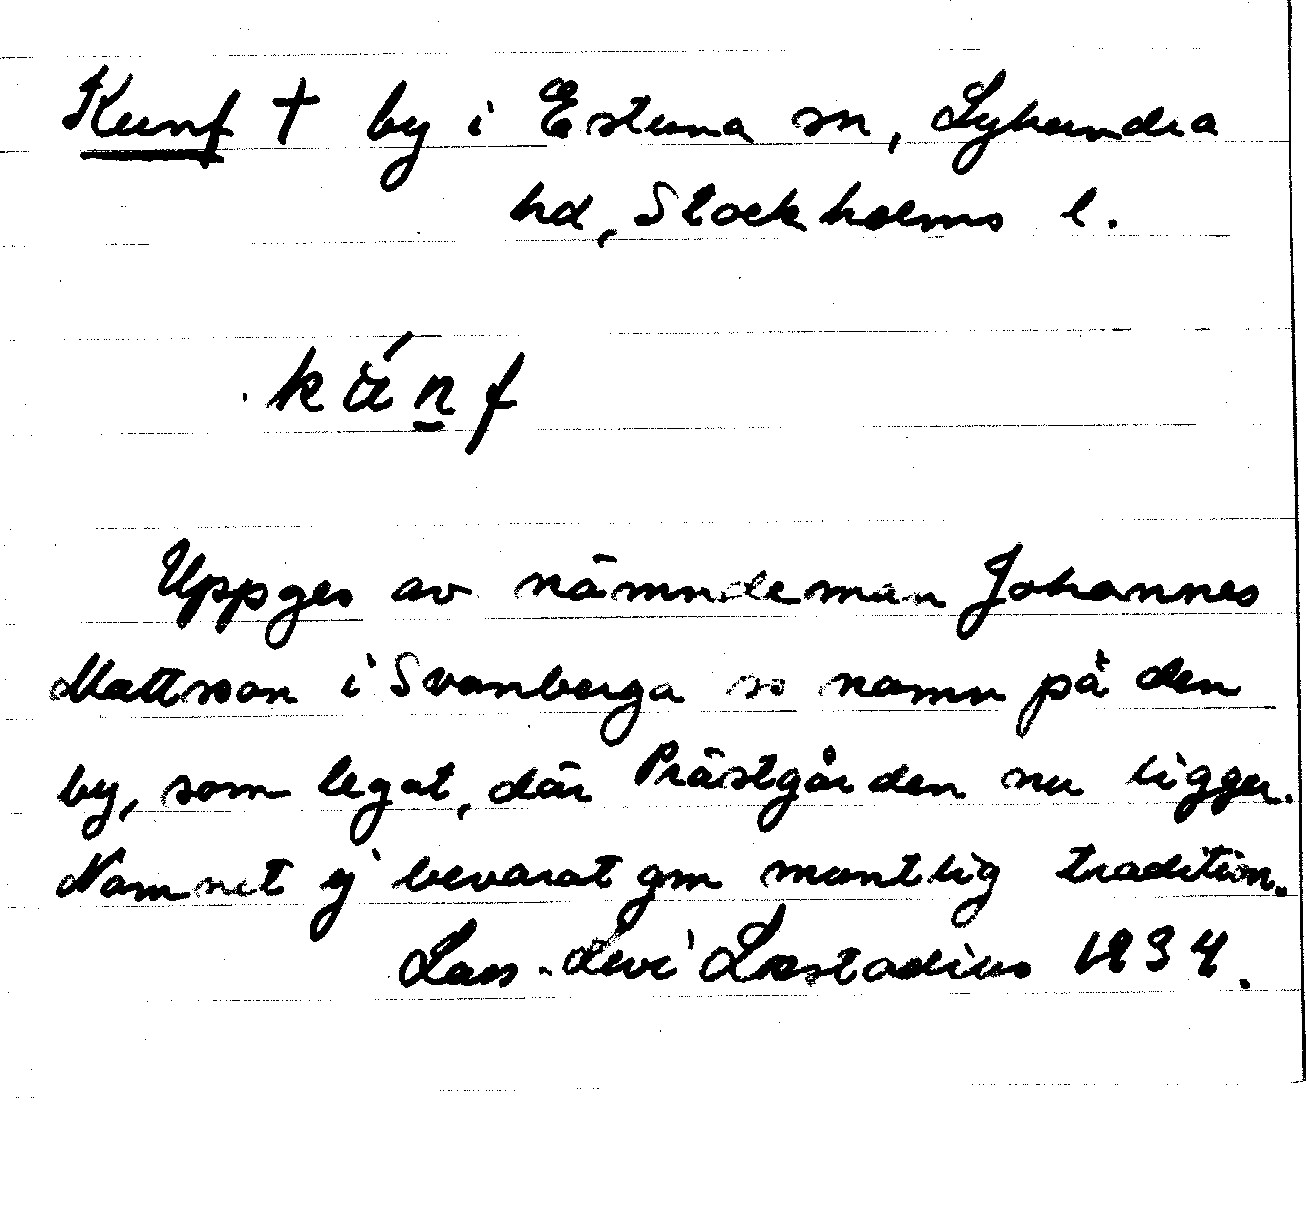 Kunf † by i Estuna sn, Lyhundra
hd, Stockholms l.
Uppges av nämndeman Johannes
Mattsson i Svanberga ss namn på den
by, som legat, där Prästgården nu ligger.
Namnet ej bevarat gm muntlig tradition.
Lars-Levi Læstadius 1934.